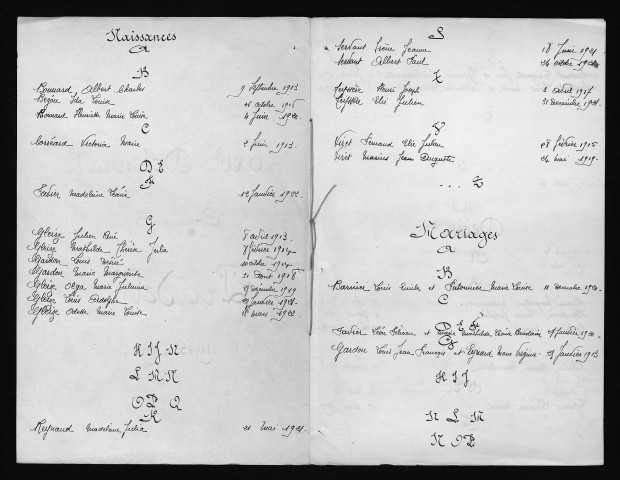 Naissances
A
B
Bonnard Albert Charles 9 Septembre 1913
Bégou Ida Louise 16 octobre 1915
Bonnard Henriette Marie Louise 4 Juin 1920
C
Victorin Marie 2 Juin 1913
D E
F
Favier Madeleine 12 Janvier 1922
G
Gleize Julien René 8 avril 1913
Gleize Mathilde Thérèse Julia 8 février 1914
Gardon Louis 10 octobre 1914
Gardon Marie Marguerite 21 Août 1918
Gleize Olga Marie Julienne 29 décembre 1919
Gleize Louis Adolphe Janvier 1921
Gleize Odette Marie Louise 18 mars 1922
H I J K
L M N
O P Q
R
Reynaud Madeleine Julia 21 Mai 1921
S
Servant Irène Jeanne 18 Juin 1921
Servant Albert Paul 24 octobre
T
Teyssère Henri Joseph 3 avril 1917
Teyssère Elie Julien 31 Décembre 1921
V
Viret Fernand Elie Julien 28 février 1915
Viret Marius Jean Auguste 24 mai 1919
... Z
Mariages
A
B
Barnier Louis Emile et Marie Louise 11 1920
C
D E F
Favier Léon et Mathilde Janvier
G
Gardon Louis Jean François et Eynard Marie Virginie 29 Janvier 1913
H I J
K L M
N O P